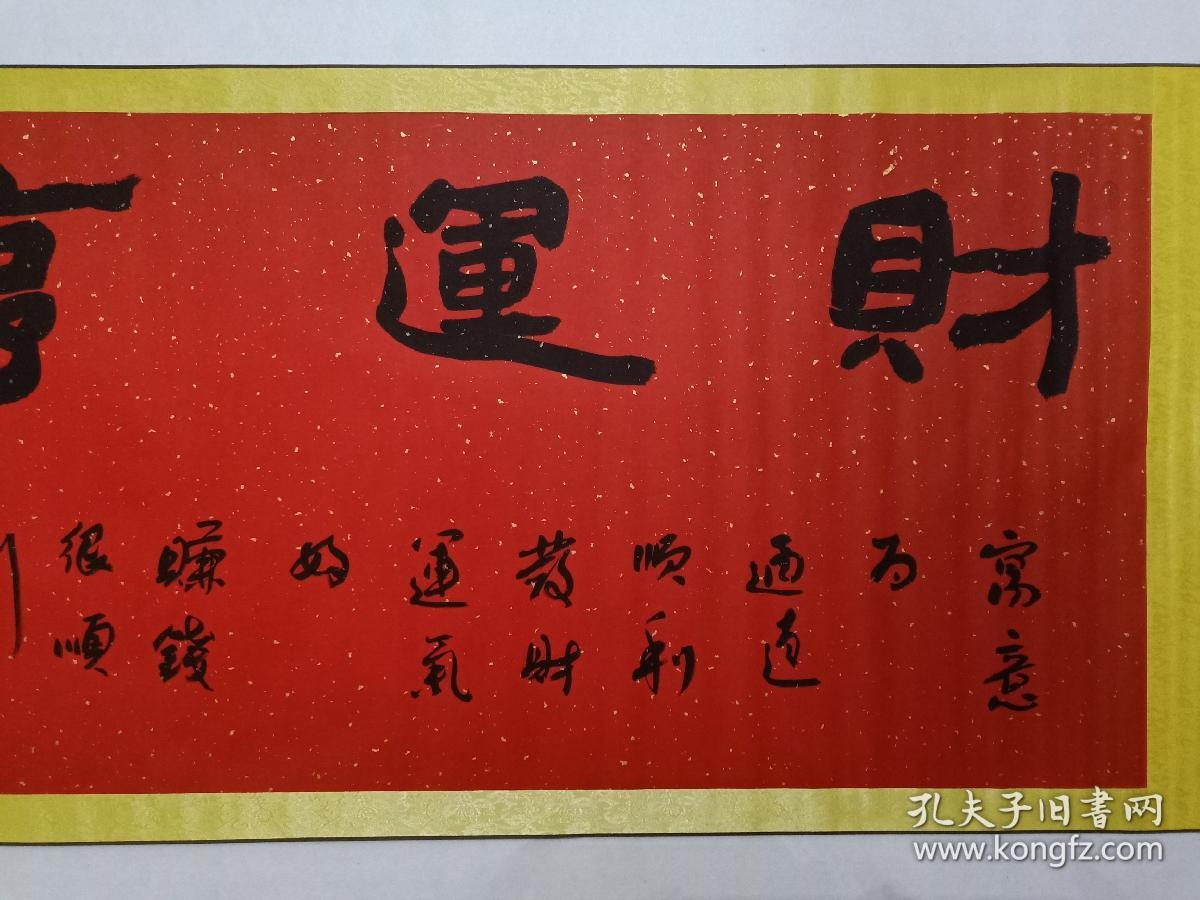 財運亨
寓意
为
通達
順利
發財
運氣
好
賺錢
很順
孔夫子旧書网
www.kongfz.com